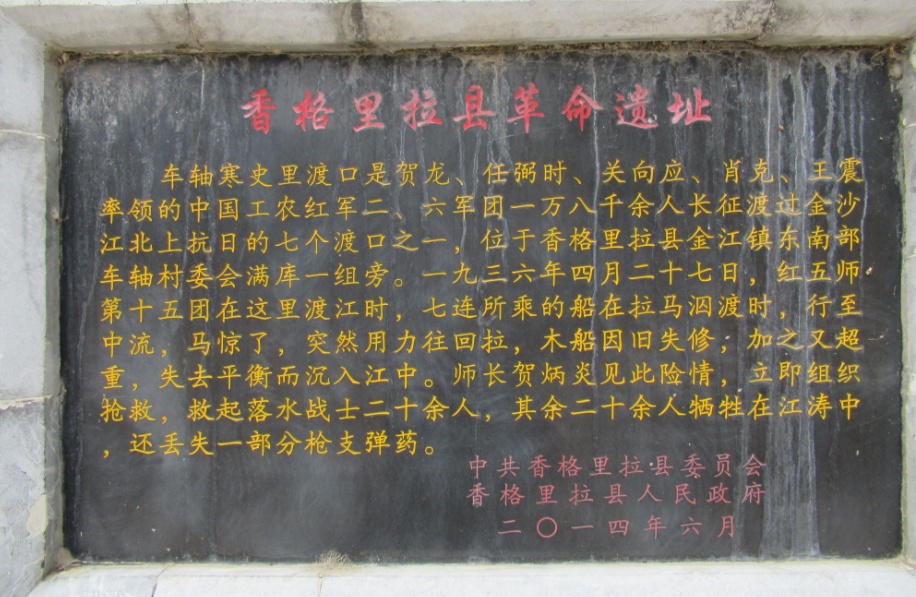 香格里拉县革命遗址
车轴寒史里渡口是贺龙、任弼时、关向应、肖克、王震
率领的中国工农红军二、六军团一万八千余人长征渡过金沙
江北上抗日的七个渡口之一，位于香格里拉县金江镇东南部
车轴村委会满库一组旁。一九三六年四月二十七日，红五师
第十五团在这里渡江时，七连所乘的船在拉马泅渡时，行至
中流，马惊了，突然用力往回拉，木船因旧失修，加之又超
重，失去平衡而沉入江中。师长贺炳炎见此险情，立即组织
抢救，救起落水战士二十余人，其余二十余人牺牲在江涛中
，还丢失一部分枪支弹药。
中共香格里拉县委员会
香格里拉县人民政府
二〇一四年六月